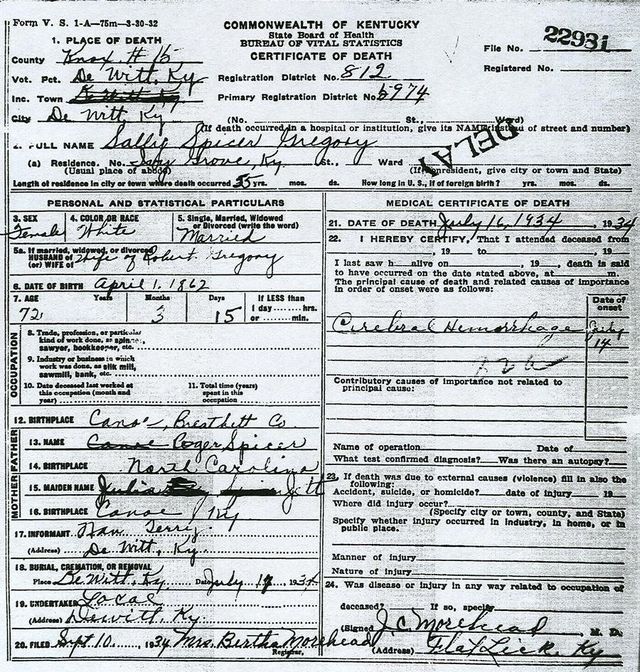 Form V. S. 1-A—75m—3-30-32
COMMONWEALTH OF KENTUCKY
State Board of Health
BUREAU OF VITAL STATISTICS
CERTIFICATE OF DEATH
File No. 22931
Registered No.
1. PLACE OF DEATH
County Knox #15
Vot. Pct. De Witt, Ky
Inc. Town
City De Witt, Ky
Registration District No. 812
Primary Registration District No. 5974
(No. St., Ward)
(If death occurred in a hospital or institution, give its NAME instead of street and number)
DELAY
2. FULL NAME Sally Spicer Gregory
(a) Residence. No. Grove, Ky. St., Ward
(Usual place of abode) (If nonresident, give city or town and State)
Length of residence in city or town where death occurred 55 yrs. mos. ds. How long in U. S., if of foreign birth? yrs. mos. ds.
PERSONAL AND STATISTICAL PARTICULARS
3. SEX Female
4. COLOR OR RACE White
5. Single, Married, Widowed or Divorced (write the word) Married
5a. If married, widowed, or divorced
HUSBAND of
(or) WIFE of Wife of Robert Gregory
6. DATE OF BIRTH April 1, 1862
7. AGE Years Months Days If LESS than
72 3 15 1 day hrs.
or min.
OCCUPATION
8. Trade, profession, or particular
kind of work done, as spinner,
sawyer, bookkeeper, etc.
9. Industry or business in which
work was done, as silk mill,
sawmill, bank, etc.
10. Date deceased last worked at
this occupation (month and
year)
11. Total time (years)
spent in this
occupation
12. BIRTHPLACE Canoe, Breathett Co
FATHER
13. NAME Roger Spicer
14. BIRTHPLACE North Carolina
MOTHER
15. MAIDEN NAME Julia Jett
16. BIRTHPLACE Canoe Ky
17. INFORMANT Nan Terry
(Address) De Witt, Ky.
18. BURIAL, CREMATION, OR REMOVAL
Place De Witt, Ky. Date July 17 1934
19. UNDERTAKER Local
(Address) Dewitt, Ky.
20. FILED Sept 10, 1934 Mrs. Bertha Morehead
Registrar.
MEDICAL CERTIFICATE OF DEATH
21. DATE OF DEATH July 16, 1934 , 1934
22. I HEREBY CERTIFY, That I attended deceased from
, 19 to , 19
I last saw h alive on , 19 death is said
to have occurred on the date stated above, at m.
The principal cause of death and related causes of importance
in order of onset were as follows:
Date of
onset
Cirebral Hemorrhage July
14
Contributory causes of importance not related to
principal cause:
Name of operation Date of
What test confirmed diagnosis? Was there an autopsy?
23. If death was due to external causes (violence) fill in also the
following:
Accident, suicide, or homicide? date of injury , 19
Where did injury occur?
(Specify city or town, county, and State)
Specify whether injury occurred in industry, in home, or in
public place.
Manner of injury
Nature of injury
24. Was disease or injury in any way related to occupation of
deceased? If so, specify
(Signed) J. C. Morehead M. D.
(Address) Flat Lick Ky